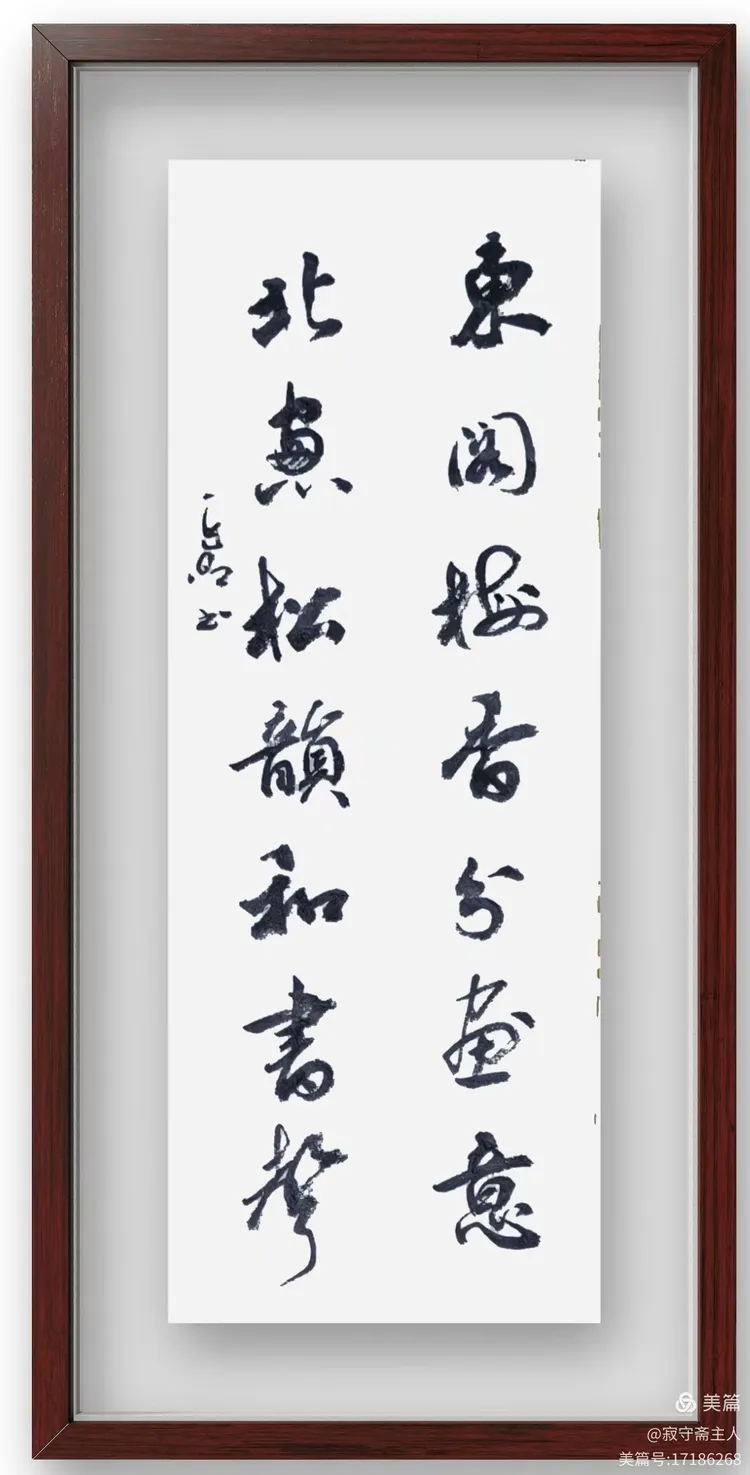 東閣梅香分畫意
北窓松韻和書聲
書
美篇
@寂守斋主人
美篇号:17186268